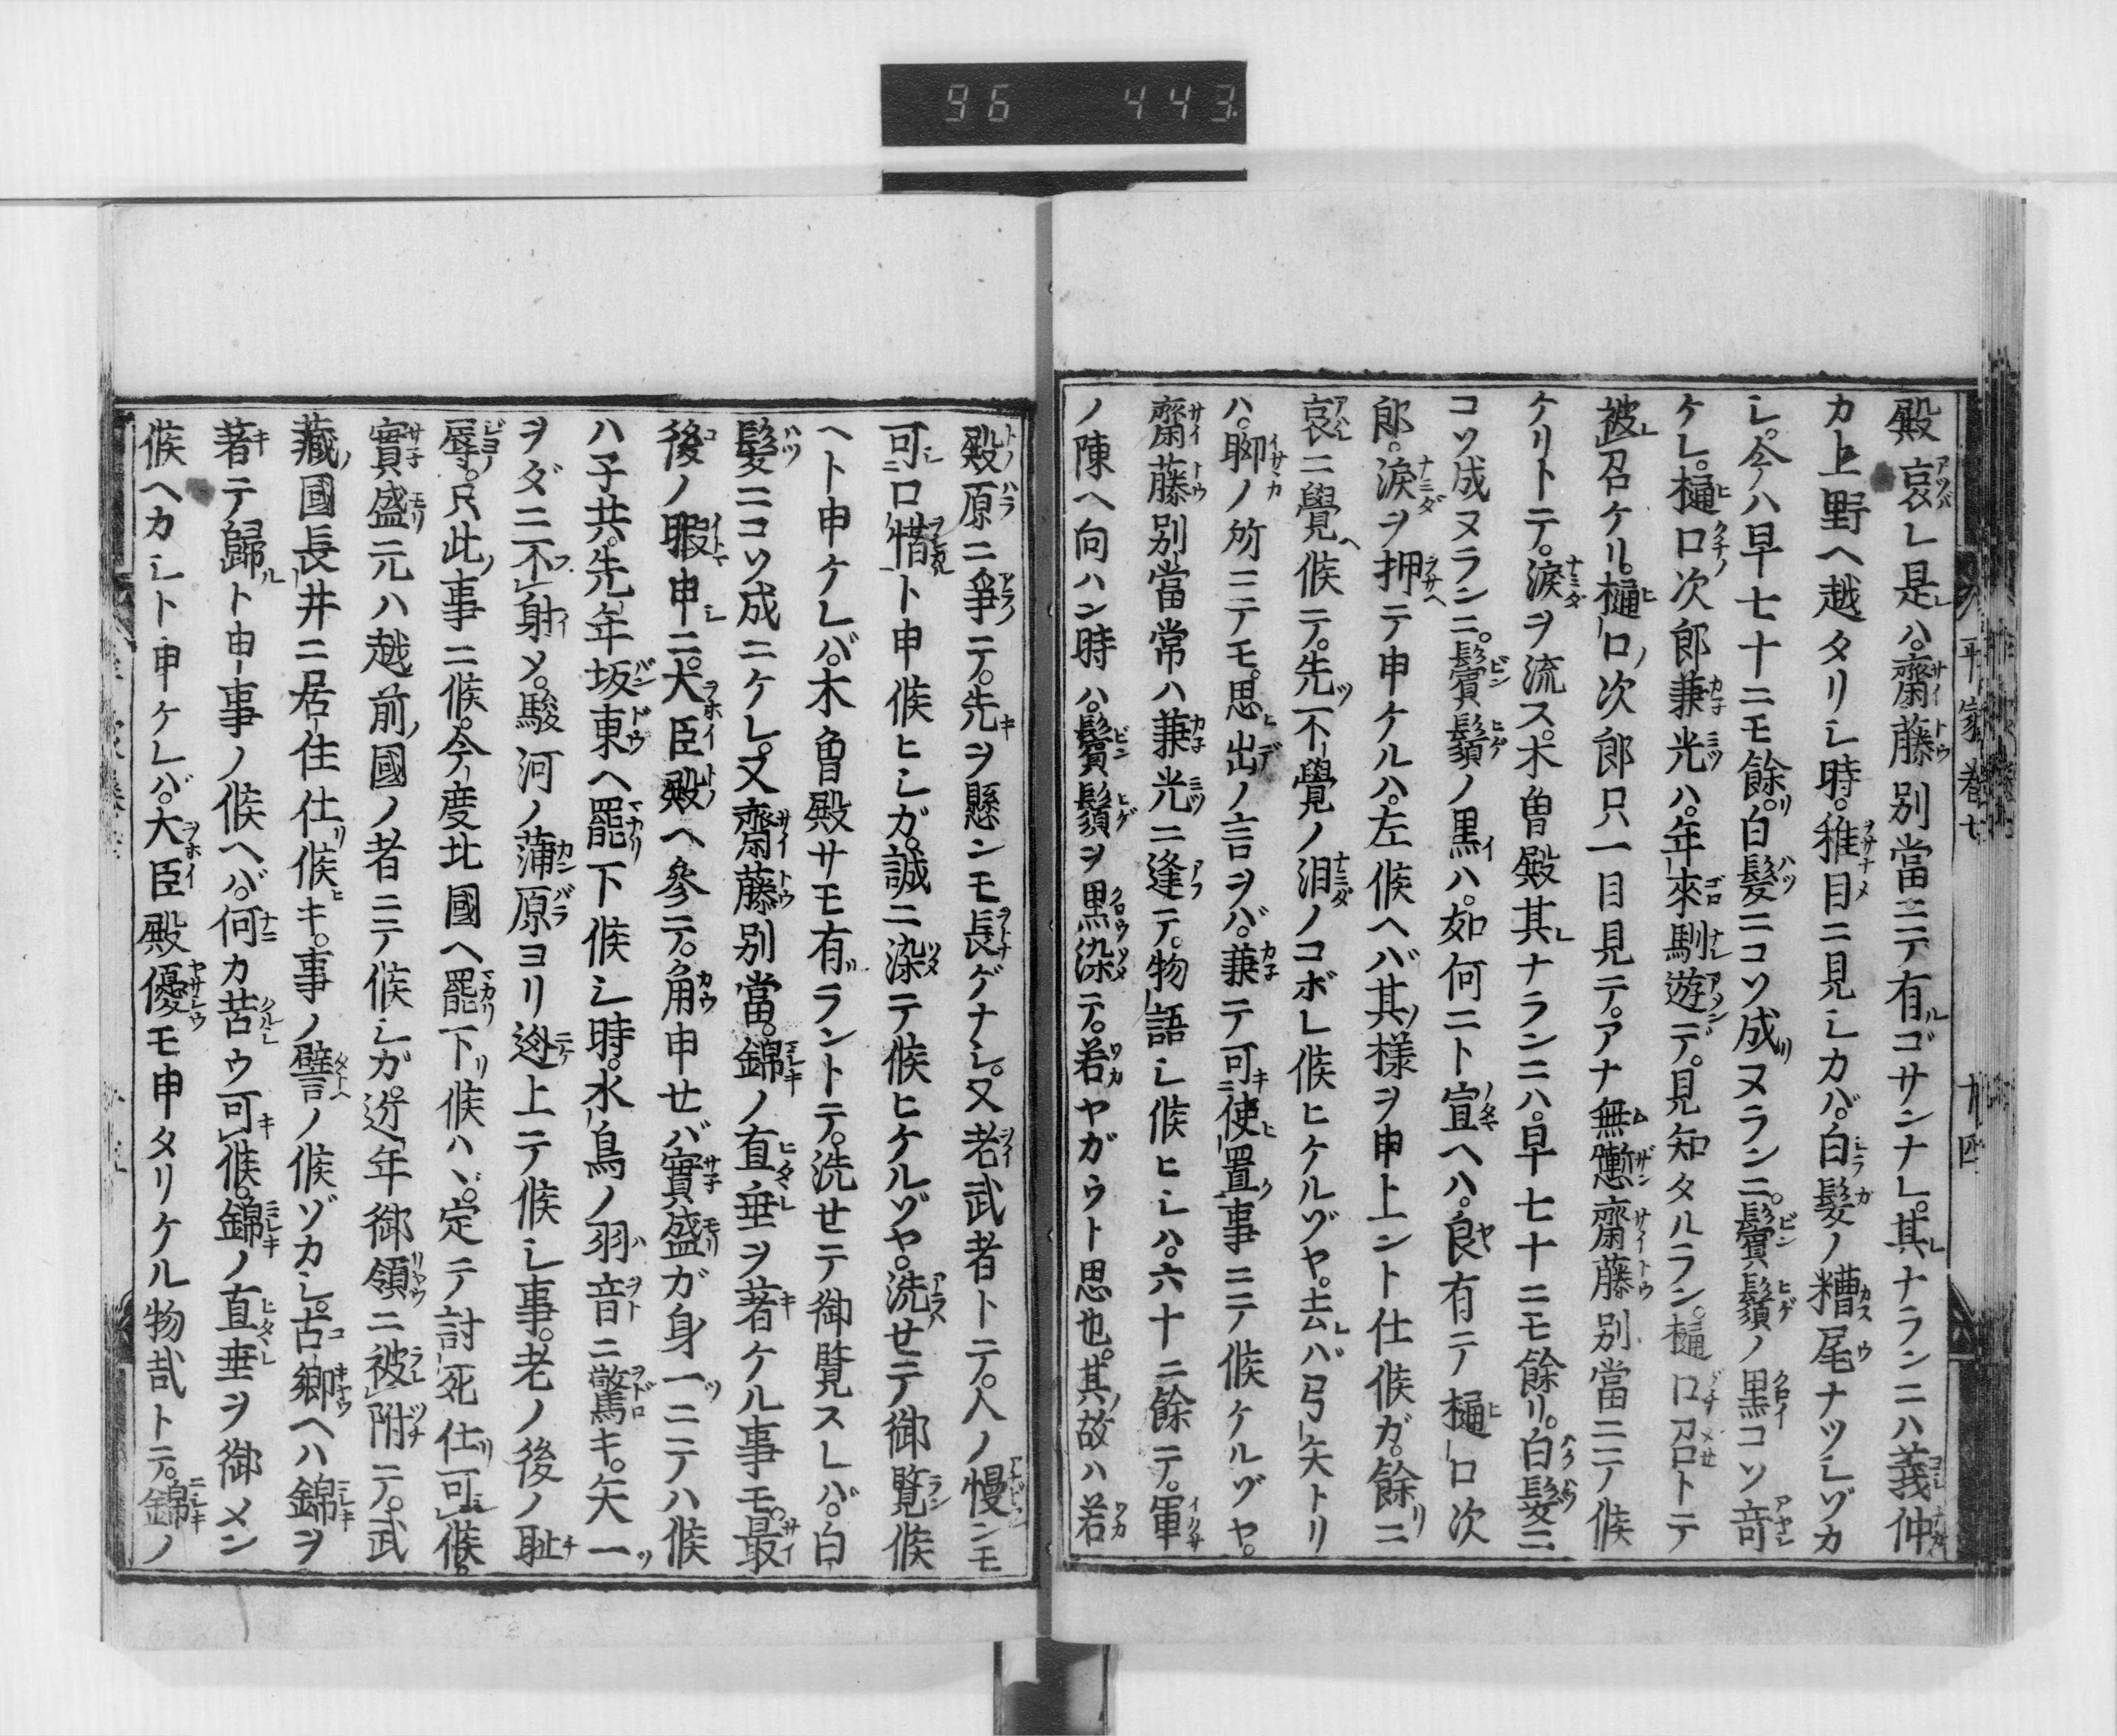 96 443
殿哀レ是ハ。齋藤別當ニテ有ゴサンナレ。其ナランニハ義仲
カ上野ヘ越タリシ時。稚目ニ見シカバ。白髮ノ糟尾ナツシゾカ
シ。今ハ早七十ニモ餘。白髮ニコソ成ヌランニ。鬢鬚ノ黒コソ奇
ケレ。樋口次郎兼光ハ。年來馴遊デ。見知タルラン。樋口召トテ
被召ケリ。樋口次郎只一目見テ。アナ無慙齋藤別當ニテ候
ケリトテ。淚ヲ流ス。木曽殿其ナランニハ。早七十ニモ餘リ。白髮ニ
コソ成ヌランニ。鬢鬚ノ黒ハ。如何ニト宣ヘハ。良有テ樋口次
郎。淚ヲ押テ申ケルハ。左候ヘバ其様ヲ申上ント仕候ガ。餘ニ
哀ニ覺候テ。先不覺ノ泪ノコボレ候ヒケルゾヤ。去バ弓矢トリ
ハ。聊ノ所ニテモ。思出ノ言ヲバ。兼テ可使置事ニテ候ケルゾヤ。
齋藤別當常ハ兼光ニ逢テ。物語シ候ヒシハ。六十ニ餘テ。軍
ノ陳ヘ向ハン時ハ。鬢鬚ヲ黒染テ。若ヤガウト思也。其故ハ若
平家巻七 十四
殿原ニ爭テ。先ヲ懸ンモ長ゲナシ。又老武者トテ。人ノ慢ンモ
可口惜ト申候ヒシガ。誠ニ染テ候ヒケルゾヤ。洗せテ御覽候
ヘト申ケレバ。木曽殿サモ有ラントテ。洗せテ御覽スレバ。白
髮ニコソ成ニケレ。又齋藤別當。錦ノ直垂ヲ著ケル事モ。最
後ノ暇申ニ。大臣殿ヘ參テ。角申せバ實盛ガ身一ニテハ候
ハ子共。先年坂東ヘ罷下候シ時。水鳥ノ羽音ニ驚キ。矢一
ヲダニ不射メ。駿河ノ蒲原ヨリ迯上テ候シ事。老ノ後ノ耻
辱。只此事ニ候。今度北國ヘ罷下候ハヾ。定テ討死仕可候。
實盛元ハ越前國ノ者ニテ候シガ。近年御領ニ被附テ。武
藏國長井ニ居住仕候キ。事ノ譬ノ候ゾカシ。古郷ヘハ錦ヲ
著テ歸ト申事ノ候ヘバ。何カ苦ウ可候。錦ノ直垂ヲ御メン
候ヘカシト申ケレバ。大臣殿優モ申タリケル物哉トテ。錦ノ